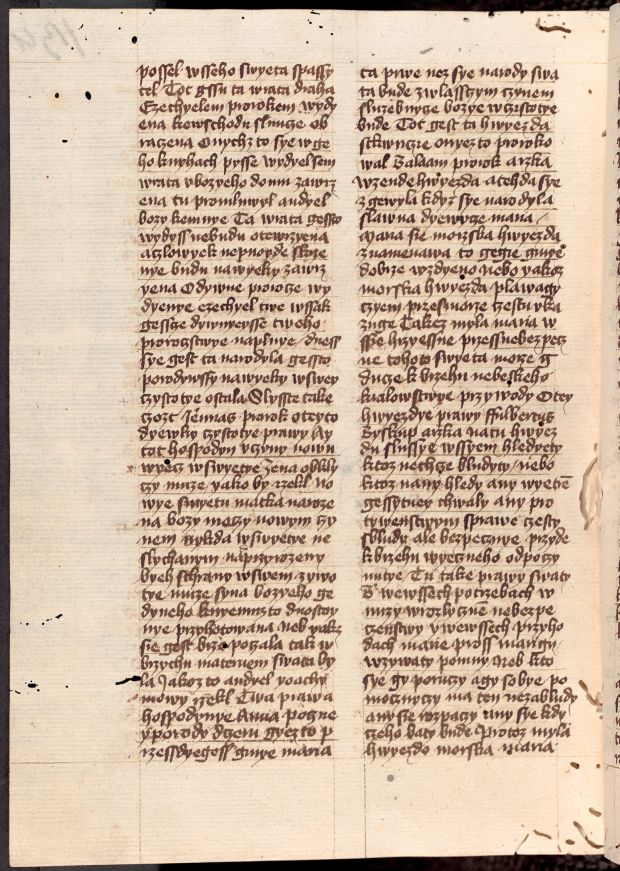 possel wsseho swyeta spassy
tel Tot gssu ta wrata draha
Ezechyelem prorokem wydy
ena kewschodu sluncze ob
raczena O nychz to sye w ge
ho knyhach pysse wydyelsem
wrata v bozyeho domu zawrz
ena tu promluwyl andyel
bozy ke mnye Ta wrata gessto
wydyss nebudu otewrzyena
a czlowyek nepuoyde skrze
nye budu na wyeky zawrz
yena O dywne prorocz wy
dyenye ezechyel twe wssak
gesscze dywnyeysse tweho
proroczstwye naplnye dness
sye gest ta narodyla gessto
porodywssy na wyeky w swey
czystotye ostala Slysste take
czoz Jeremias prorok o teyto
dyewky czystotye prawy Ay
tot hospodyn vczyny nowu
wyecz w swyetye zena obkly
czy muze yako by rzekl no
wye swyetu matka naroze
na bozy moczy nowym czy
nem nykda w swyetye ne
slychanym naprzyrozeny
byeh schrany w swem zywo
tye muze syna bozyeho ge
dyneho k nyemuz to duostoy
nye przyhotowana neb yakz
sie gest brzo poczala tak w
brzychu materzem swata by
la Jakoz to andyel yoachy
mowy rzekl Twa prawa
hospodynye Anna pocgne
y porody dczeru gyez to p
rzessdyegess gmye maria
ta prwe nez sye narody swa
ta bude zwlasscym czynem
sluzebnycze bozye w czistotye
bude Tot gest ta hwyezda
stkwucze o nyez to proroko
wal Balaam prorok arzka
wzende hwyezda a tehda sye
zgewyla kdyz sye narodyla
slawna dyewycze maria
Maria sie morzska hwyezda
znamenawa to gegie gmye
dobrze wzdyeno nebo yakoz
morska hwyezda plawagy
czyem przes morze czestu vka
zuge Takez myla maria w
ssie hrzyessne przes nebezpecz
ne tohoto swyeta morze g
ducze k brzehu nebeskeho
kralowstwye przywody O tey
hwyezdye prawy ffulbertus
Byskup arzka na tu hwyez
du slussye wssyem hledyety
ktoz nechcze bludyty nebo
ktoz nany hledy any wyetre
gessytney chwaly any pro
tywenstwym sprawe czesty
sbludy ale bezpecznye przyde
k brzehu wyeczneho odpoczy
nutye Tu take prawy swaty
B wewssech potrzebach w
nuzy w rozlyczne nebezpe
czenstwy v wewssech przyho
dach marie pross mariegy
wzywaty pomny neb kto
sye gy poruczy a gy sobye po
mocznyczy ma ten nezabludy
any sie rozpaczy any sye kdy
czeho baty bude Protoz myla
hwyezdo morska maria